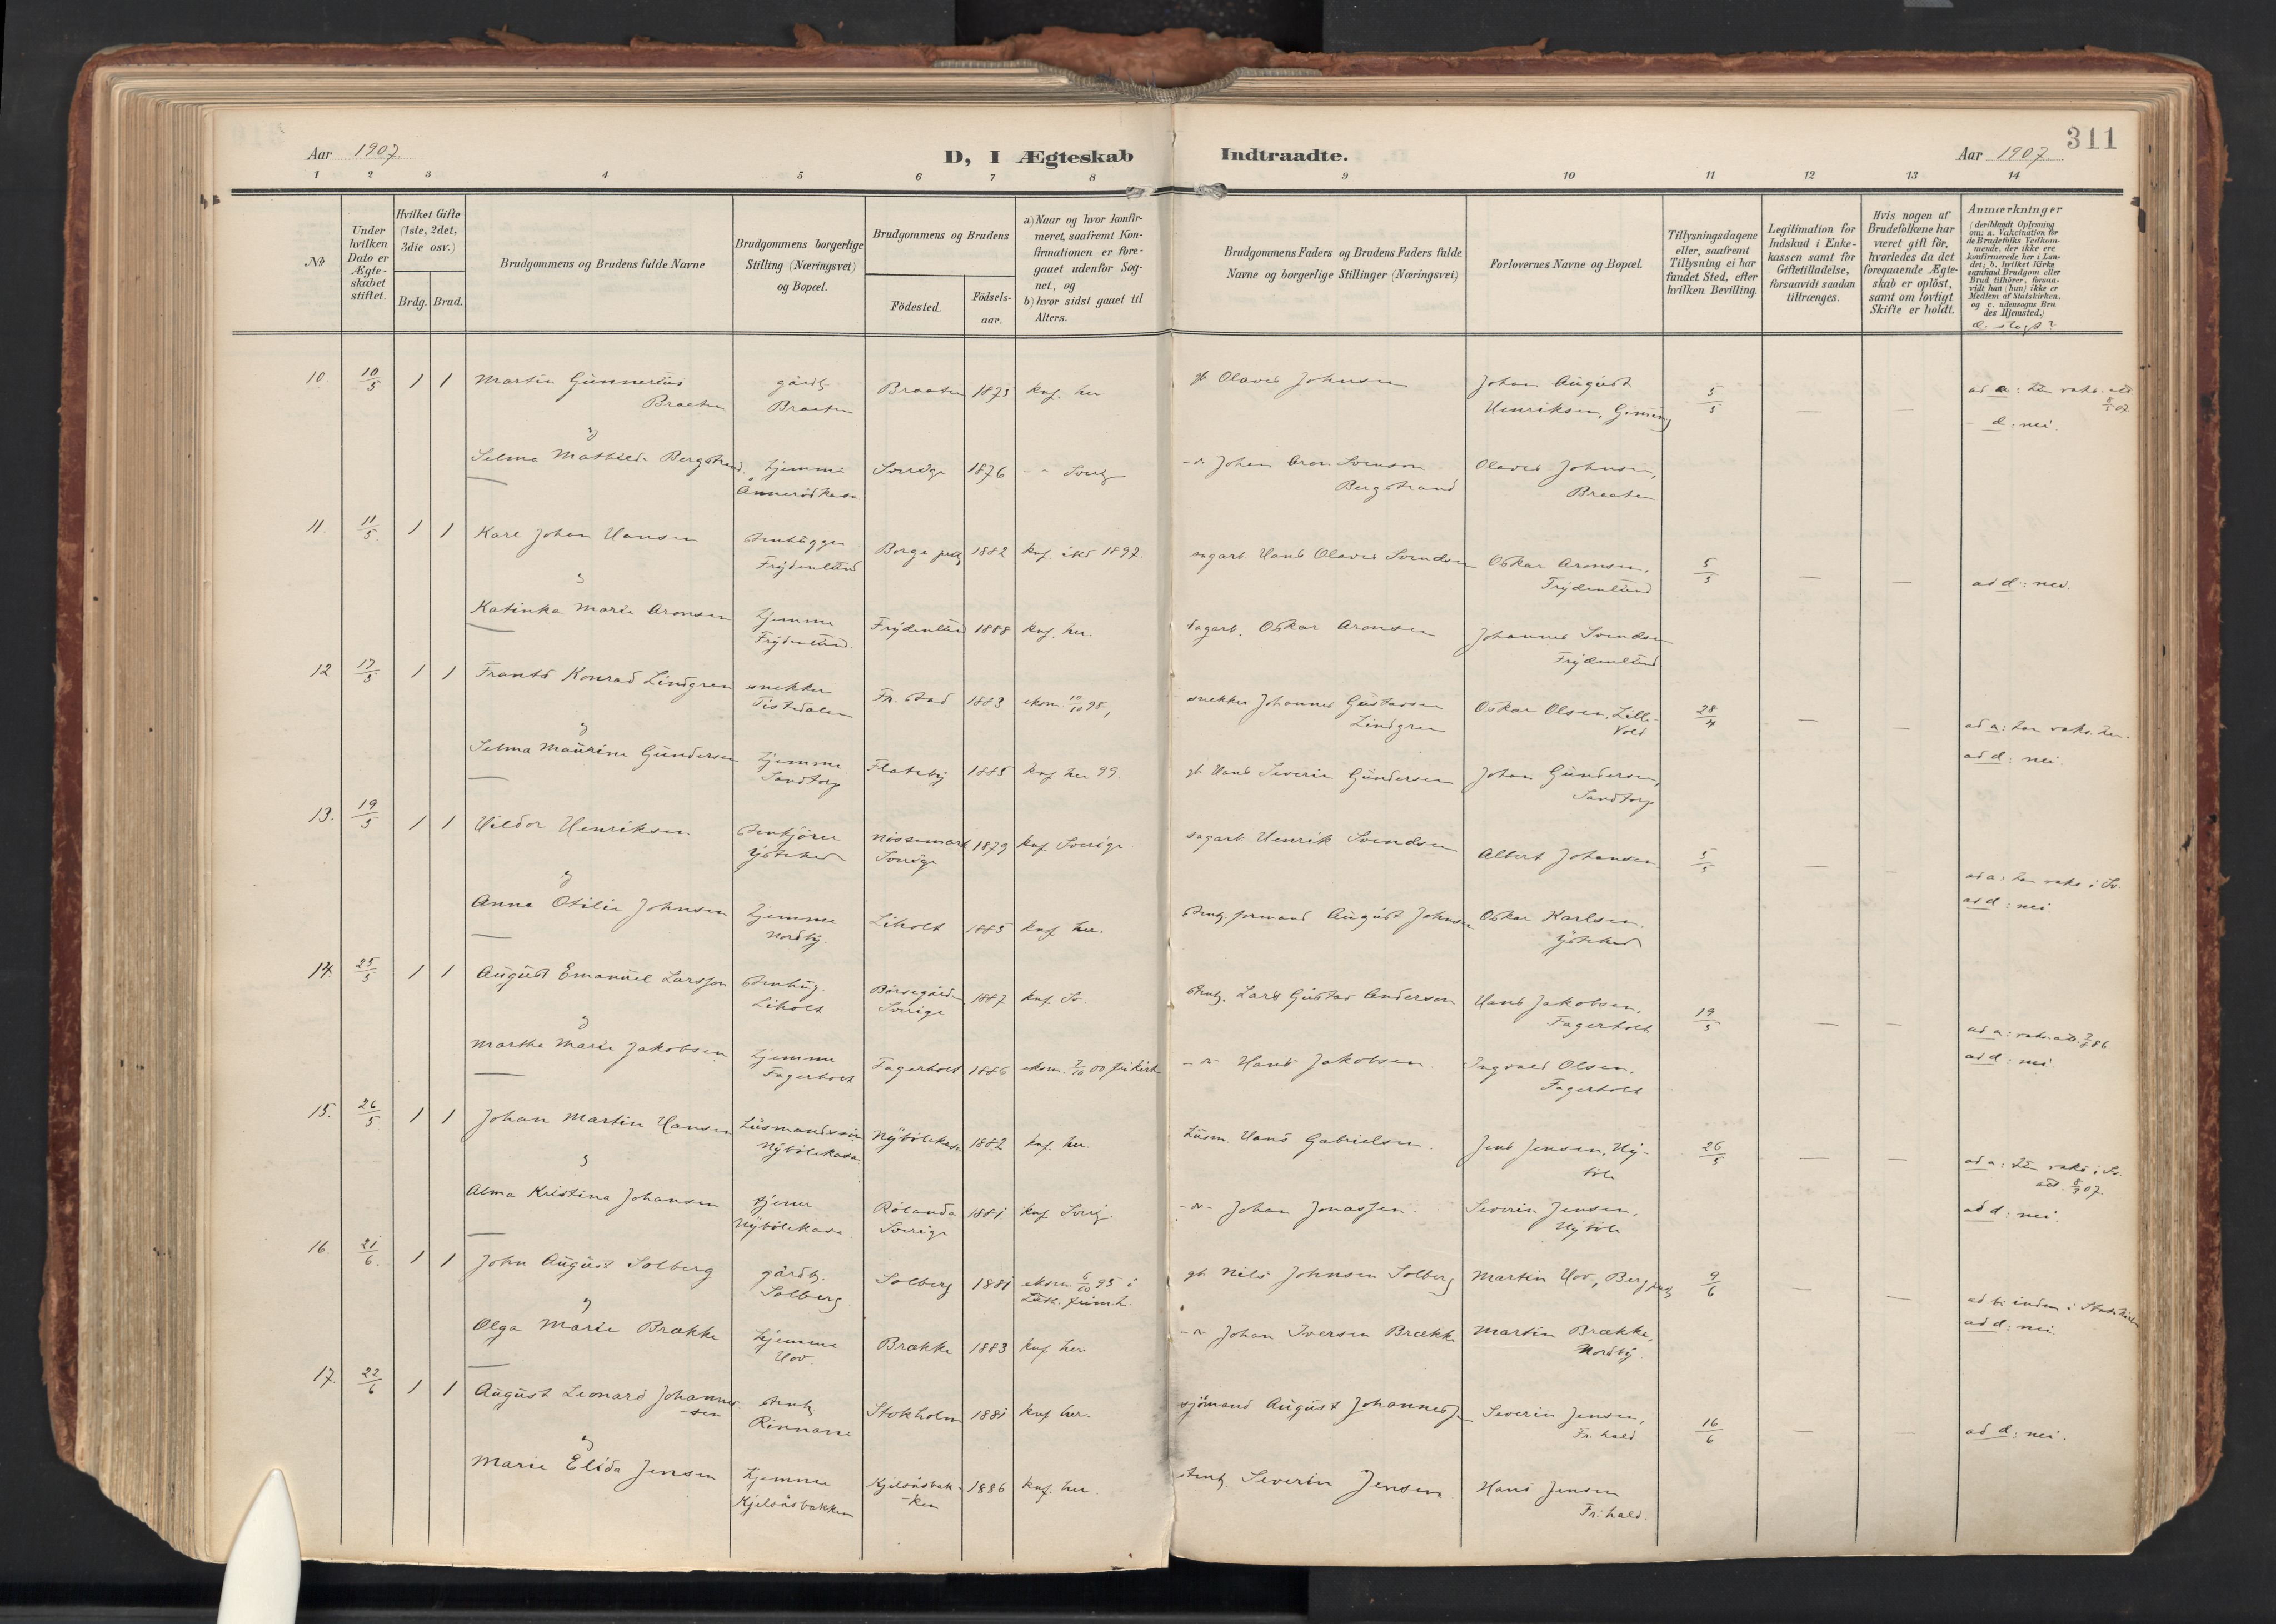 311
Aar 1907.
D, I Ægteskab
Indtraadte.
Aar 1907
1 2 3 4 5 6 7 8 9 10 11 12 13 14
No
Under
hvilken
Dato er
Ægte-
skabet
stiftet.
Hvilket Gifte
(1ste, 2det,
3die osv.)
Brdg. Brud.
Brudgommens og Brudens fulde Navne
Brudgommens borgerlige
Stilling (Næringsvei)
og Bopæl.
Brudgommens og Brudens
Födested.
Födsels-
aar.
a) Naar og hvor konfir-
meret, saafremt Kon-
firmationen er fore-
gaaet udenfor Sog-
net, og
b) hvor sidst gaaet til
Alters.
Brudgommens Faders og Brudens Faders fulde
Navne og borgerlige Stillinger (Næringsvei)
Forlovernes Navne og Bopæl.
Tillysningsdagene
eller, saafremt
Tillysning ei har
fundet Sted, efter
hvilken Bevilling.
Legitimation for
Indskud i Enke-
kassen samt for
Giftetilladelse,
forsaavidt saadan
tiltrænges.
Hvis nogen af
Brudefolkene har
været gift för,
hvorledes da det
foregaaende Ægte-
skab er oplöst,
samt om lovligt
Skifte er holdt.
Anmærkninger
(deriblandt Oplysning
om: a. Vakcination for
de Brudefolks Vedkom-
mende, der ikke ere
konfirmerede her i Lan-
det; b. hvilket Kirke
samfund Brudgom eller
Brud tilhörer, forsaa-
vidt han (hun) ikke er
Medlem af Statskirken,
og c. udensogns Bru
des Hjemsted.)
d. slegt?
10. 10/5 1 1 Martin Gunnerius
Braaten
gårdb.
Braaten
Braaten 1873 knf. her
gb. Olaves Johnsen
Johan August
Henriksen,
5/5 — —
ad a: hun vaks. att.
8/5 07.
- d: nei.
og
Selma Mathilde Bergstrand
hjemme
Ånnerödkasa
Sverige 1876 - " Sverig
- " - Johan Aron Svenson
Bergstrand
Olaves Johnsen,
Braaten
11. 11/5 1 1 Karl Johan Hansen
stenhugger
Frydenlund
Borge prg 1882 knf. ikr 1897.
dagarb. Hans Olaves Svendsen
Oskar Aronsen,
Frydenlund
5/5 — —
ad d: nei.
og
Katinka Marie Aronsen
hjemme
Frydenlund.
Frydenlund 1888 knf. her.
dagarb. Oskar Aronsen
Johannes Svendsen
Frydenlund
12 17/5 1 1 Frants Konrad Lindgren
snekker
Tistedalen
Fr. stad 1883 ekom 10/10 98,
snekker Johannes Gustavsen
Lindgren
Oskar Olsen, Lille-
Vold
28/4 — —
ad a: han vaks. her.
ad d: nei.
og
Selma Maurine Gundersen
hjemme
Sandtorp
Flateby 1885 knf her 99.
gb. Hans Severin Gundersen
Johan Gundersen,
Sandtorp
13. 19/5 1 1 Hildor Henriksen
stenkjörer
Nössemark
Sverige
1879 knf. Sverige.
dagarb. Henrik Svendsen
Albert Johansen
5/5 — —
ad a: han vaks. i Sv.
ad d: nei
og
Anna Otilie Johnsen
hjemme
Nordby.
Liholt 1885 knf. her.
stenh. formand August Johnsen
Oskar Karlsen.
14. 25/5 1 1 August Emanuel Larsson
stenhug.
Liholt
Sverige
1887 knf Sv.
stenh. Lars Gustav Anderson
Hans Jakobsen,
Fagerholt
19/5 — —
ad a: vaks. att. 2/8 86
ad d: nei.
og
Marthe Marie Jakobsen
hjemme
Fagerholt
Fagerholt 1886 ekom. 7/10 00 frikirk
- " - Hans Jakobsen.
Ingvald Olsen,
Fagerholt
15. 26/5 1 1 Johan Martin Hansen
husmandssön
Nybölekasa
Nybölekasa 1882 knf. her.
husm. Hans Gabrielsen.
Jens Jensen, Ny-
böle
26/5 — —
ad a: hun vaks i Sv.
att. 8/3 07.
ad d: nei.
og
Alma Kristina Johansen
tjener
Nybölekasa.
Rölanda
Sverige
1881. knf. Sverig.
- " - Johan Jonassen.
Severin Jensen,
Nyböle
16. 21/6. 1 1 John August Solberg
gårdb.
Solberg.
Solberg 1881 ekom 6/10 95 i
Luth. frim.h.
gb. Nils Johnsen Solberg
Martin Hov, Berg prg
9/6 — —
ad b: indm. i Statskirken
ad d: nei.
og
Olga Marie Brække
hjemme
Hov.
Brække 1883 knf her.
- " - Johan Iversen Brække
Martin Brække,
Nordby.
17. 22/6 1 1 August Leonard Johannes-
-sen
stenh.
Rinnane
Stokholm 1881 knf her.
sjömand August Johannesen
Severin Jensen,
Fr. hald
16/6 — —
ad d: nei.
og
Marie Elida Jensen
hjemme
Kjelsåsbakken
Kjelsåsbak-
-ken
1886 knf. her.
stenh. Severin Jensen.
Hans Jensen
Fr. hald.